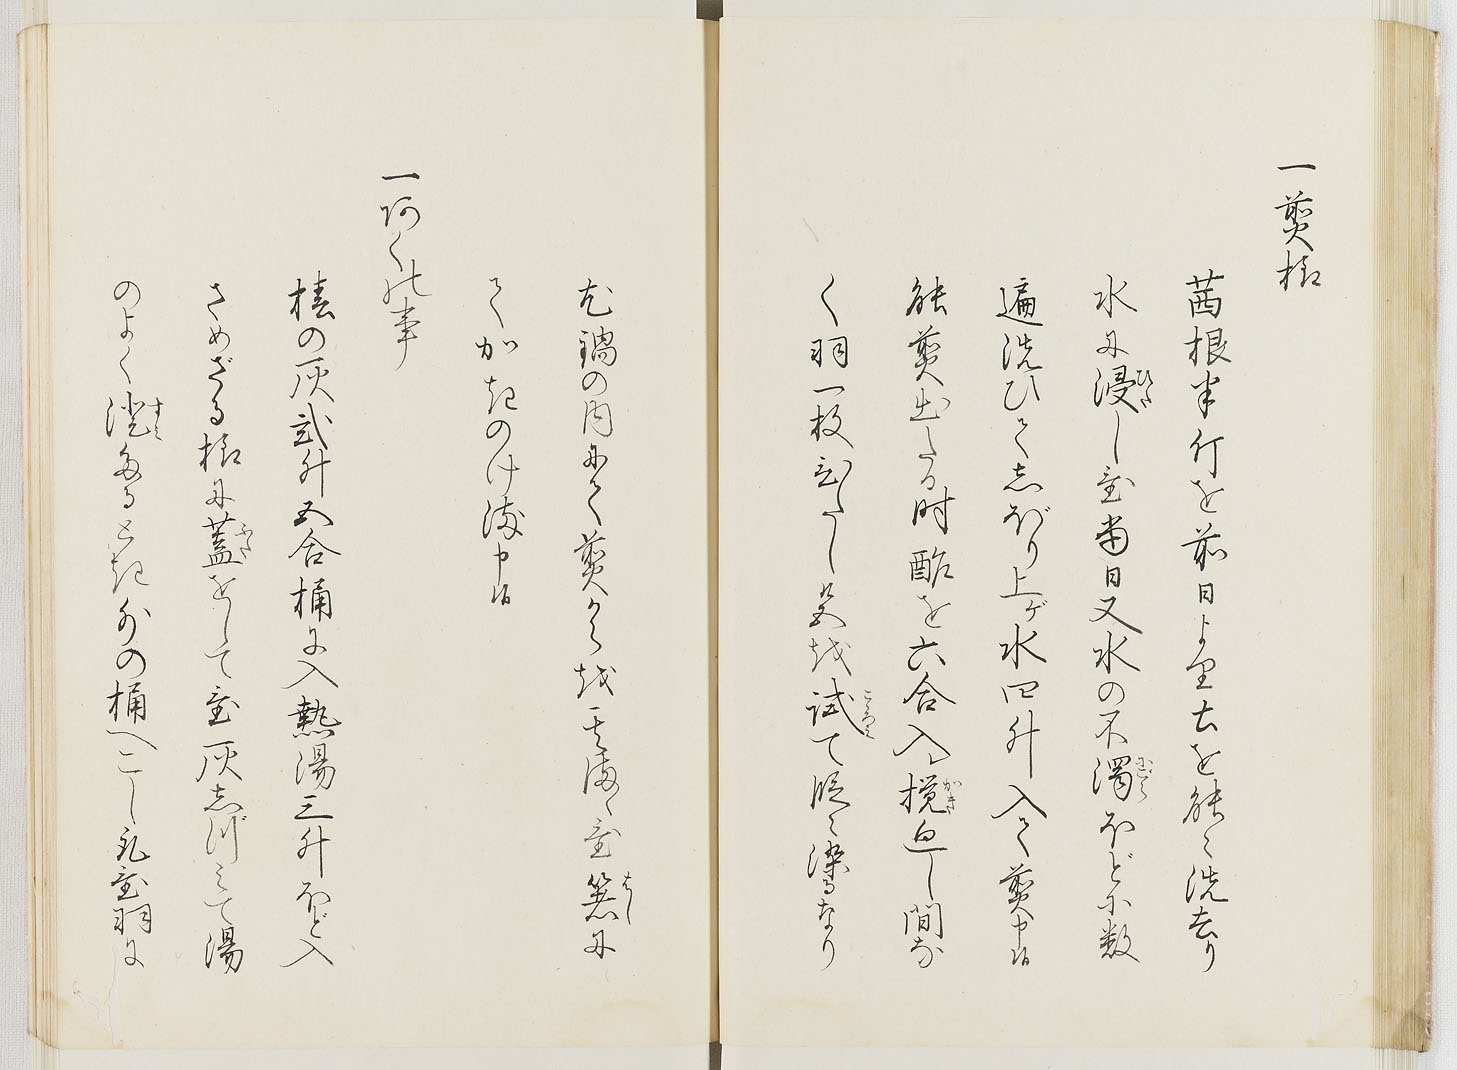 一煎様
茜根半斤を前日より土を能く洗去り
水に浸し置当日又水の不濁ほどに数
遍洗ひてしぼり上ゲ水四升入て煎申候
能煎出たる時酢を六合入掻廻し間な
く羽一枚ひたし是を試て段々染るなり
尤鍋の内にて煎から越其侭に置箸に
てかきのけ染申候
一阿くの事
椿の灰弐升五合桶に入熱湯三升ほど入
さめざる様に蓋をして置灰しづみて湯
のよく澄たるとき外の桶へこし礼置羽に